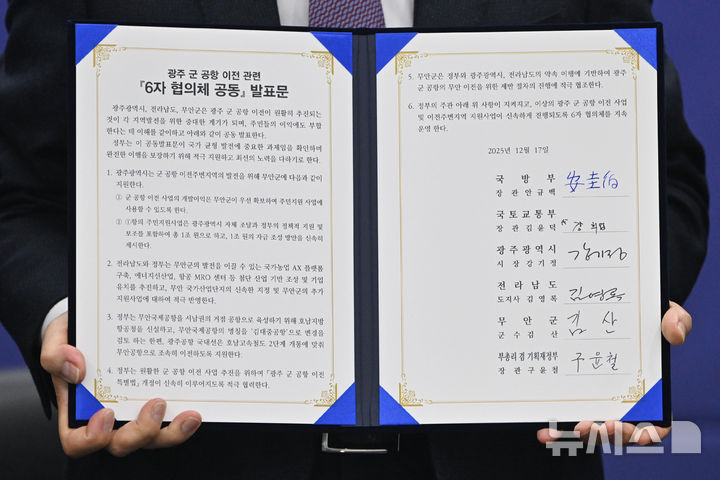 광주 군 공항 이전 관련
『6자 협의체 공동』 발표문
광주광역시, 전라남도, 무안군은 광주 군 공항 이전이 원활히 추진되는
것이 각 지역발전을 위한 중대한 계기가 되며, 주민들의 이익에도 부합
한다는 데 이해를 같이하고 아래와 같이 공동 발표한다.
정부는 이 공동발표문이 국가 균형 발전에 중요한 과제임을 확인하며
완전한 이행을 보장하기 위해 적극 지원하고 최선의 노력을 다하기로 한다.
1. 광주광역시는 군 공항 이전주변지역의 발전을 위해 무안군에 다음과 같이
지원한다.
① 군 공항 이전 사업의 개발이익은 무안군이 우선 확보하여 주민지원 사업에
사용할 수 있도록 한다.
② ①항의 주민지원사업은 광주광역시 자체 조달과 정부의 정책적 지원 및
보조를 포함하여 총 1조 원으로 하고, 1조 원의 자금 조성 방안을 신속히
제시한다.
2. 전라남도와 정부는 무안군의 발전을 이끌 수 있는 국가농업 AX 플랫폼
구축, 에너지신산업, 항공 MRO 센터 등 첨단 산업 기반 조성 및 기업
유치를 추진하고, 무안 국가산업단지의 신속한 지정 및 무안군의 추가
지원사업에 대하여 적극 반영한다.
3. 정부는 무안국제공항을 서남권의 거점 공항으로 육성하기 위해 호남지방
항공청을 신설하고, 무안국제공항의 명칭을 '김대중공항'으로 변경을
검토 하는 한편, 광주공항 국내선은 호남고속철도 2단계 개통에 맞춰
무안공항으로 조속히 이전하도록 지원한다.
4. 정부는 원활한 군 공항 이전 사업 추진을 위하여 「광주 군 공항 이전
특별법」 개정이 신속히 이루어지도록 적극 협력한다.
5. 무안군은 정부와 광주광역시, 전라남도의 약속 이행에 기반하여 광주
군 공항의 무안 이전을 위한 제반 절차의 진행에 적극 협조한다.
6. 정부의 주관 아래 위 사항이 지켜지고, 이상의 광주 군 공항 이전 사업
및 이전주변지역 지원사업이 신속하게 진행되도록 6자 협의체를 지속
운영 한다.
2025년 12월 17일
국 방 부
장 관 안 규 백 安圭伯
국 토 교 통 부
장 관 김 윤 덕
광 주 광 역 시
시 장 강 기 정 강기정
전 라 남 도
도지사 김 영 록 김영록
무 안 군
군 수 김 산 김 산
부총리 겸 기획재정부
장 관 구 윤 철 구윤철
뉴시스